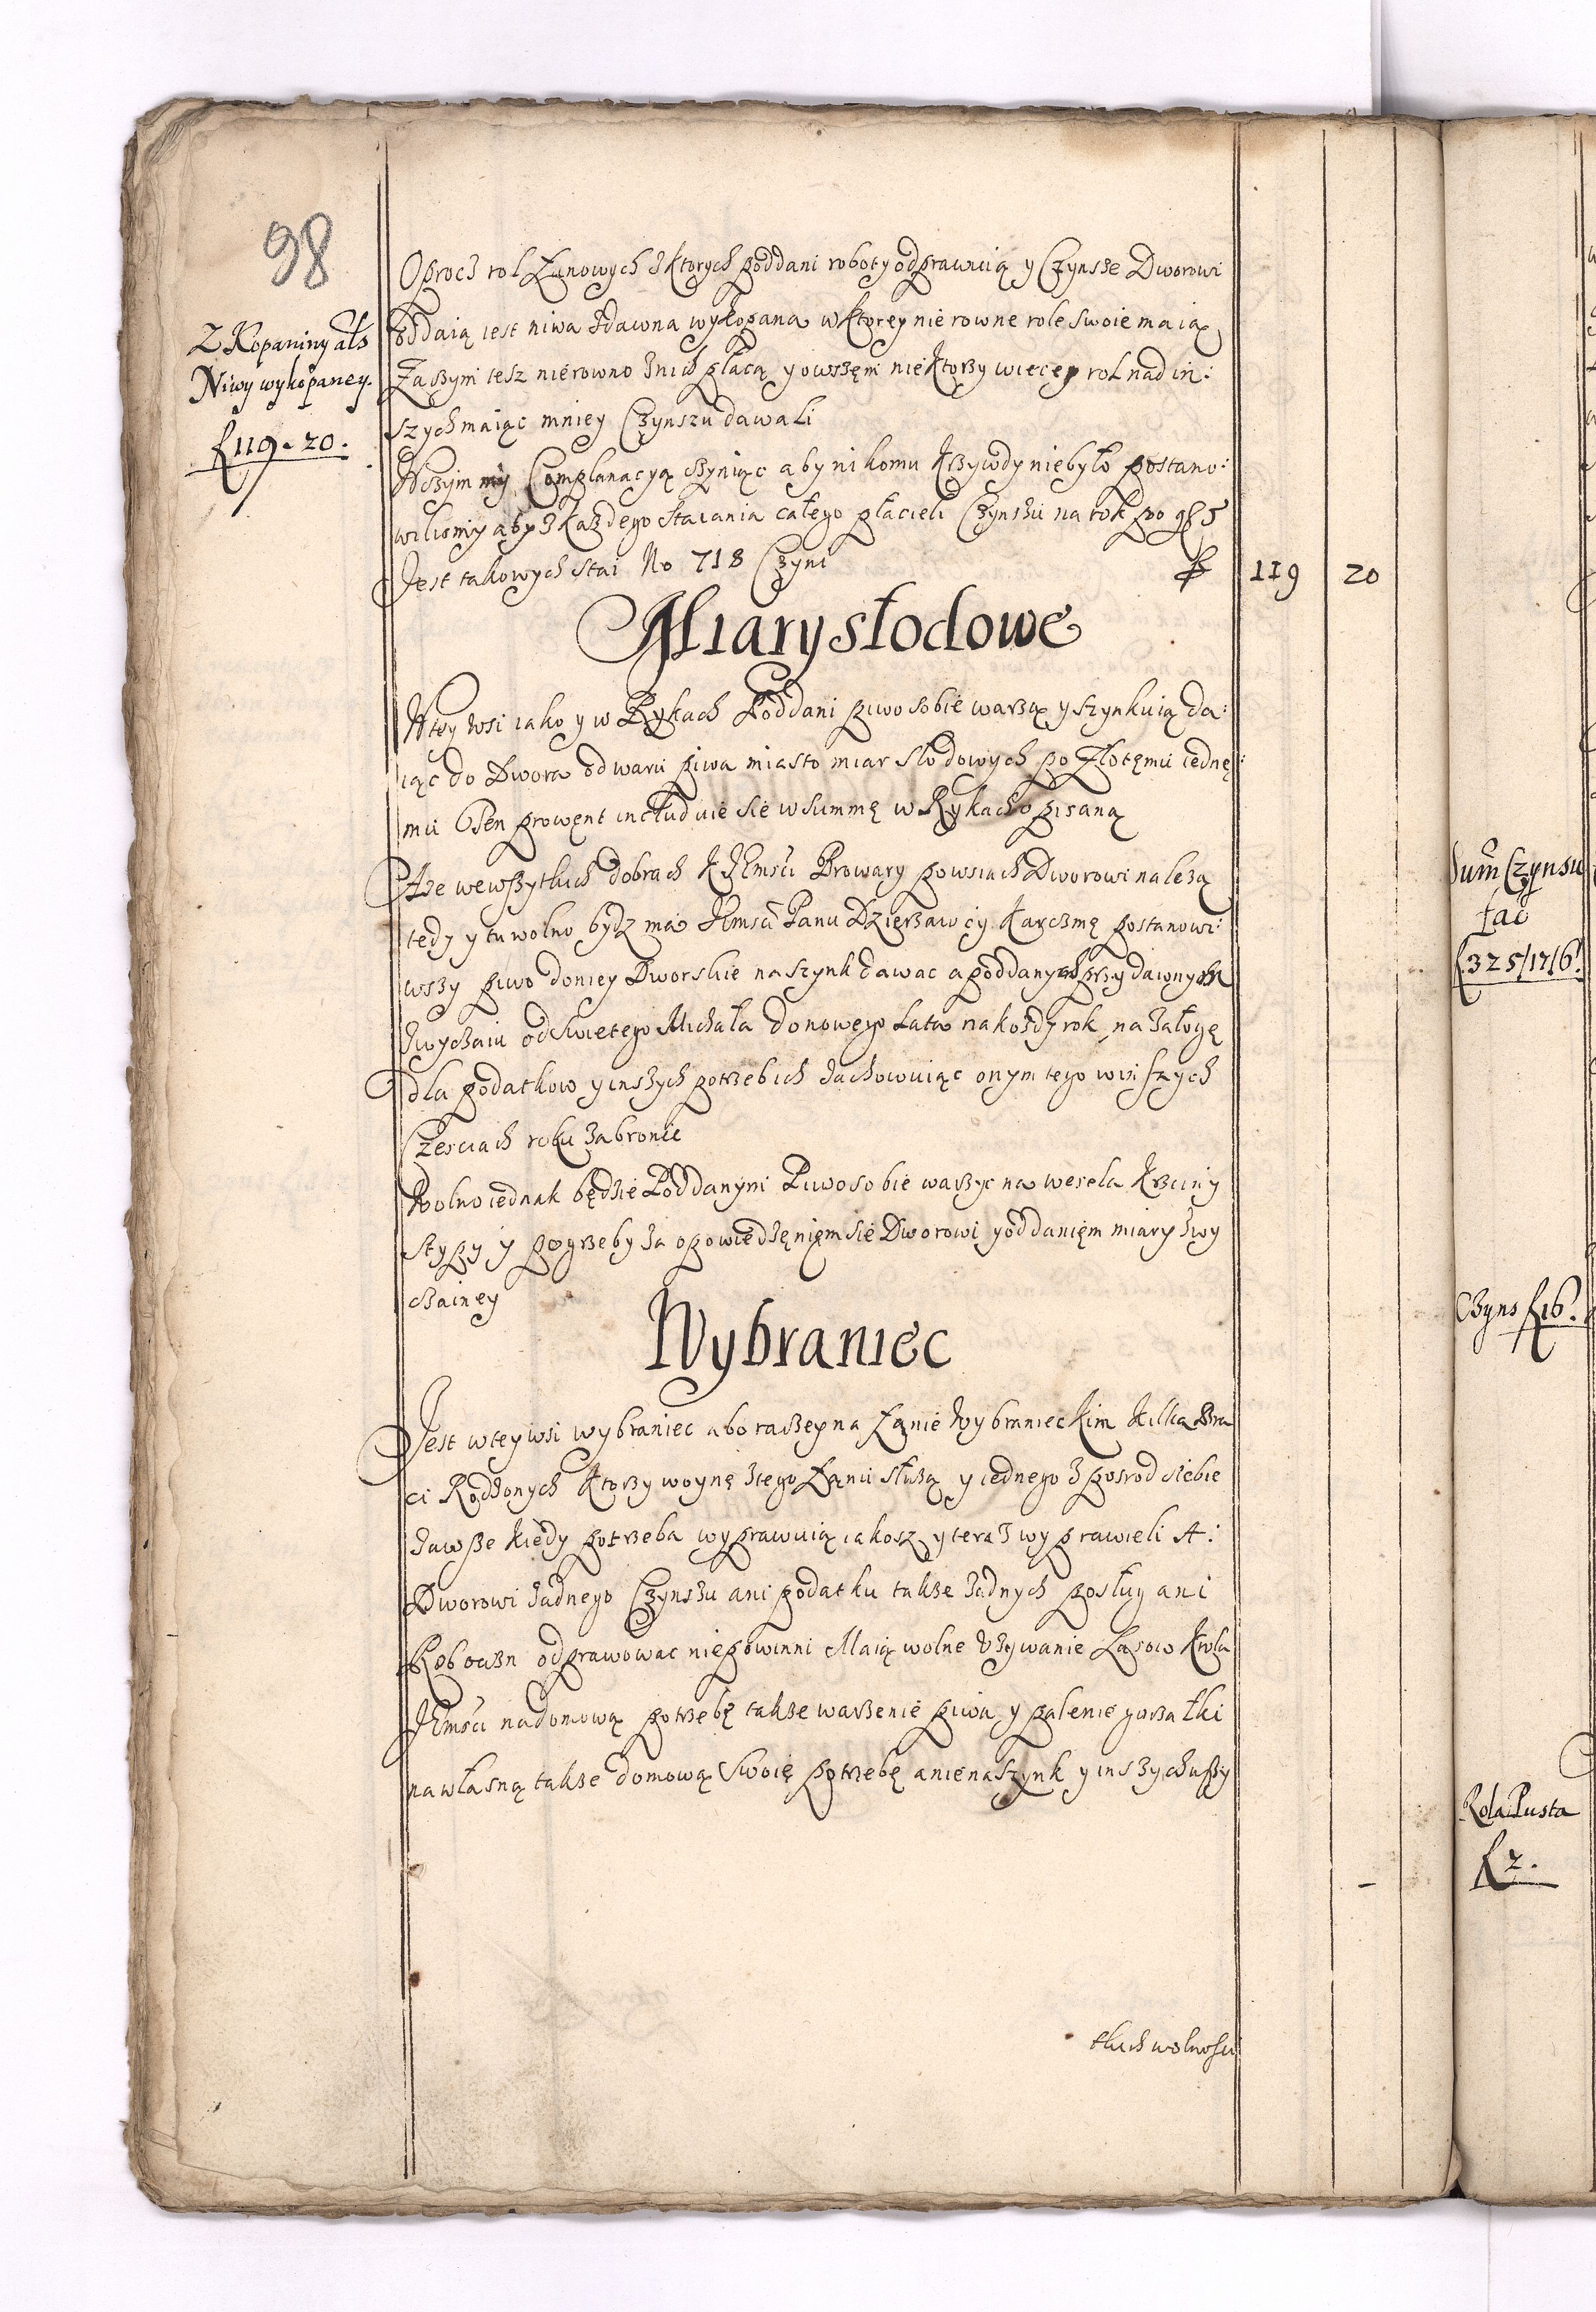 98
Z Kopaniny als
Niwy wykopaney.
f 119 - 20.
Oprocz rol Łanowych z ktorych poddani roboty odprawuią y Czynsze Dworowi
oddaią iest niwa zdawna wykopana w ktorey nierowne role swoie maią
Zaczym tesz nierowno z nich płacą y owszem niektorzy wiecey rol nad in:
szych maiąc mniey Czynszu dawali
W czym my Complanacyą czyniąc aby nikomu krzywdy niebyło postano:
wilismy aby z każdego staiania całego płacieli Czynszu na rok po gr 5
Jest takowych stai No 718 Czyni f 119 20
Miary słodowe
W tey wsi iako y w Rykach Poddani piwo sobie warzą y szynkuią da:
iąc do Dwora od waru piwa miasto miar słodowych po złotemu iedne:
mu Ten prowent includuie sie w summę w Rykach opisaną
A że we wszytkich dobrach K JEmsci Browary po wsiach Dworowi należą
tedy y tu wolno bydz ma JEmsci Panu Dzierzawcy karczmę postanowi:
wszy piwo do niey Dworskie na szynk dawac a poddanych przy dawnym
zwyczaiu od Swietego Michała do nowego Lata na kożdy rok na załogę
dla podatkow y inszych potrzeb ich zachowuiąc onym tego w inszych
Czesciach roku zabronic
Wolno iednak będzie Poddanym Piwo sobie warzyc na wesela krzciny
stypy y pogrzeby za opowiedzeniem sie Dworowi y oddaniem miary zwy
czainey
Wybraniec
Jest w tey wsi wybraniec abo raczey na Łanie Wybranieckim kilka Bra
ci Rodzonych ktorzy woynę z tego Łanu służą y iednego z posrod siebie
zawsze kiedy potrzeba wyprawuią iakosz y teraz wyprawieli A:
Dworowi żadnego Czynszu ani podatku także żadnych posług ani
Roboczn odprawowac niepowinni Maią wolne używanie Lasow Krola
JEmsci na domową potrzebę także warzenie piwa y palenie gorzałki
na własną także domową swoię potrzebę a nie na szynk y inszych wszy
tkich wolnosci
Sum Czynsu
fac
f 325/17/6.
Czyns f 16.
Rola Pusta
f 2.